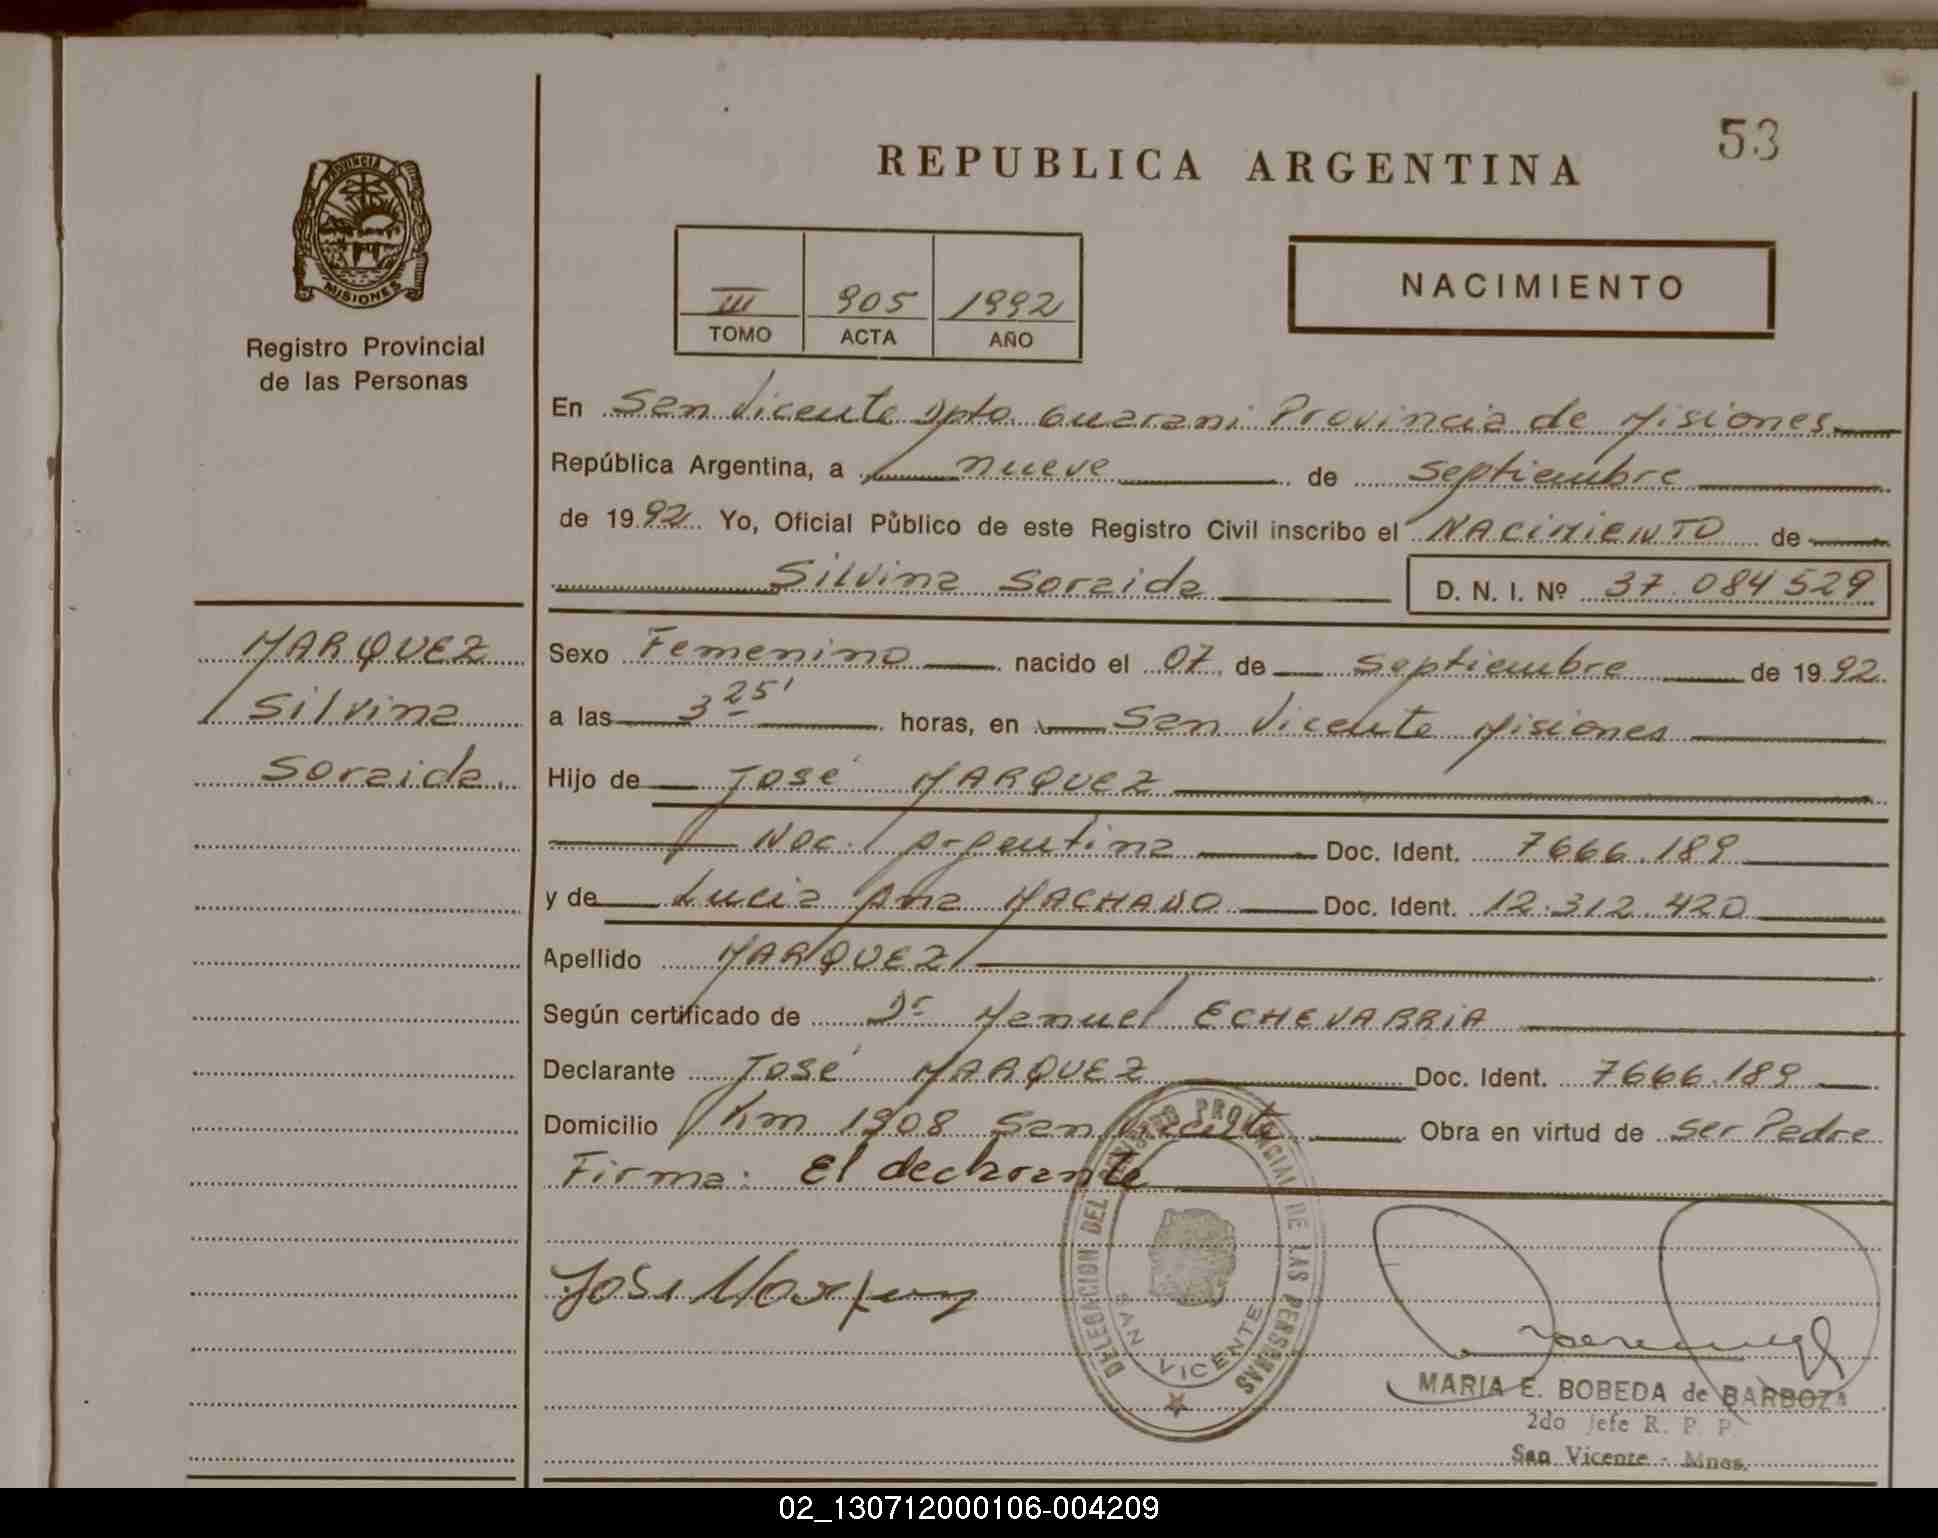 53
REPUBLICA ARGENTINA
PROVINCIA DE
MISIONES
Registro Provincial
de las Personas
III 905 1992
TOMO ACTA AÑO
NACIMIENTO
En San Vicente Dpto. Guarani Provincia de Misiones
República Argentina, a nueve de Septiembre
de 1992 Yo, Oficial Público de este Registro Civil inscribo el NACIMIENTO de
Silvina Soraida D. N. I. Nº 37.084529
MARQUEZ
Silvina
Soraida.
Sexo Femenino nacido el 07 de Septiembre de 1992.
a las 3 25' horas, en San Vicente Misiones
Hijo de José MARQUEZ
Nac. Argentina Doc. Ident. 7666.189
y de Lucia Ana MACHADO Doc. Ident. 12.312.420
Apellido MARQUEZ
Según certificado de Dr Manuel ECHEVARRIA
Declarante José MARQUEZ Doc. Ident. 7666.189
Domicilio Km 1908 San Vicente Obra en virtud de ser Padre
Firma: El declarante
José Marquez
DELEGACION DEL REGISTRO PROVINCIAL DE LAS PERSONAS
SAN VICENTE
MARIA E. BOBEDA de BARBOZA
2do Jefe R. P. P.
San Vicente - Mnes.
02_130712000106-004209